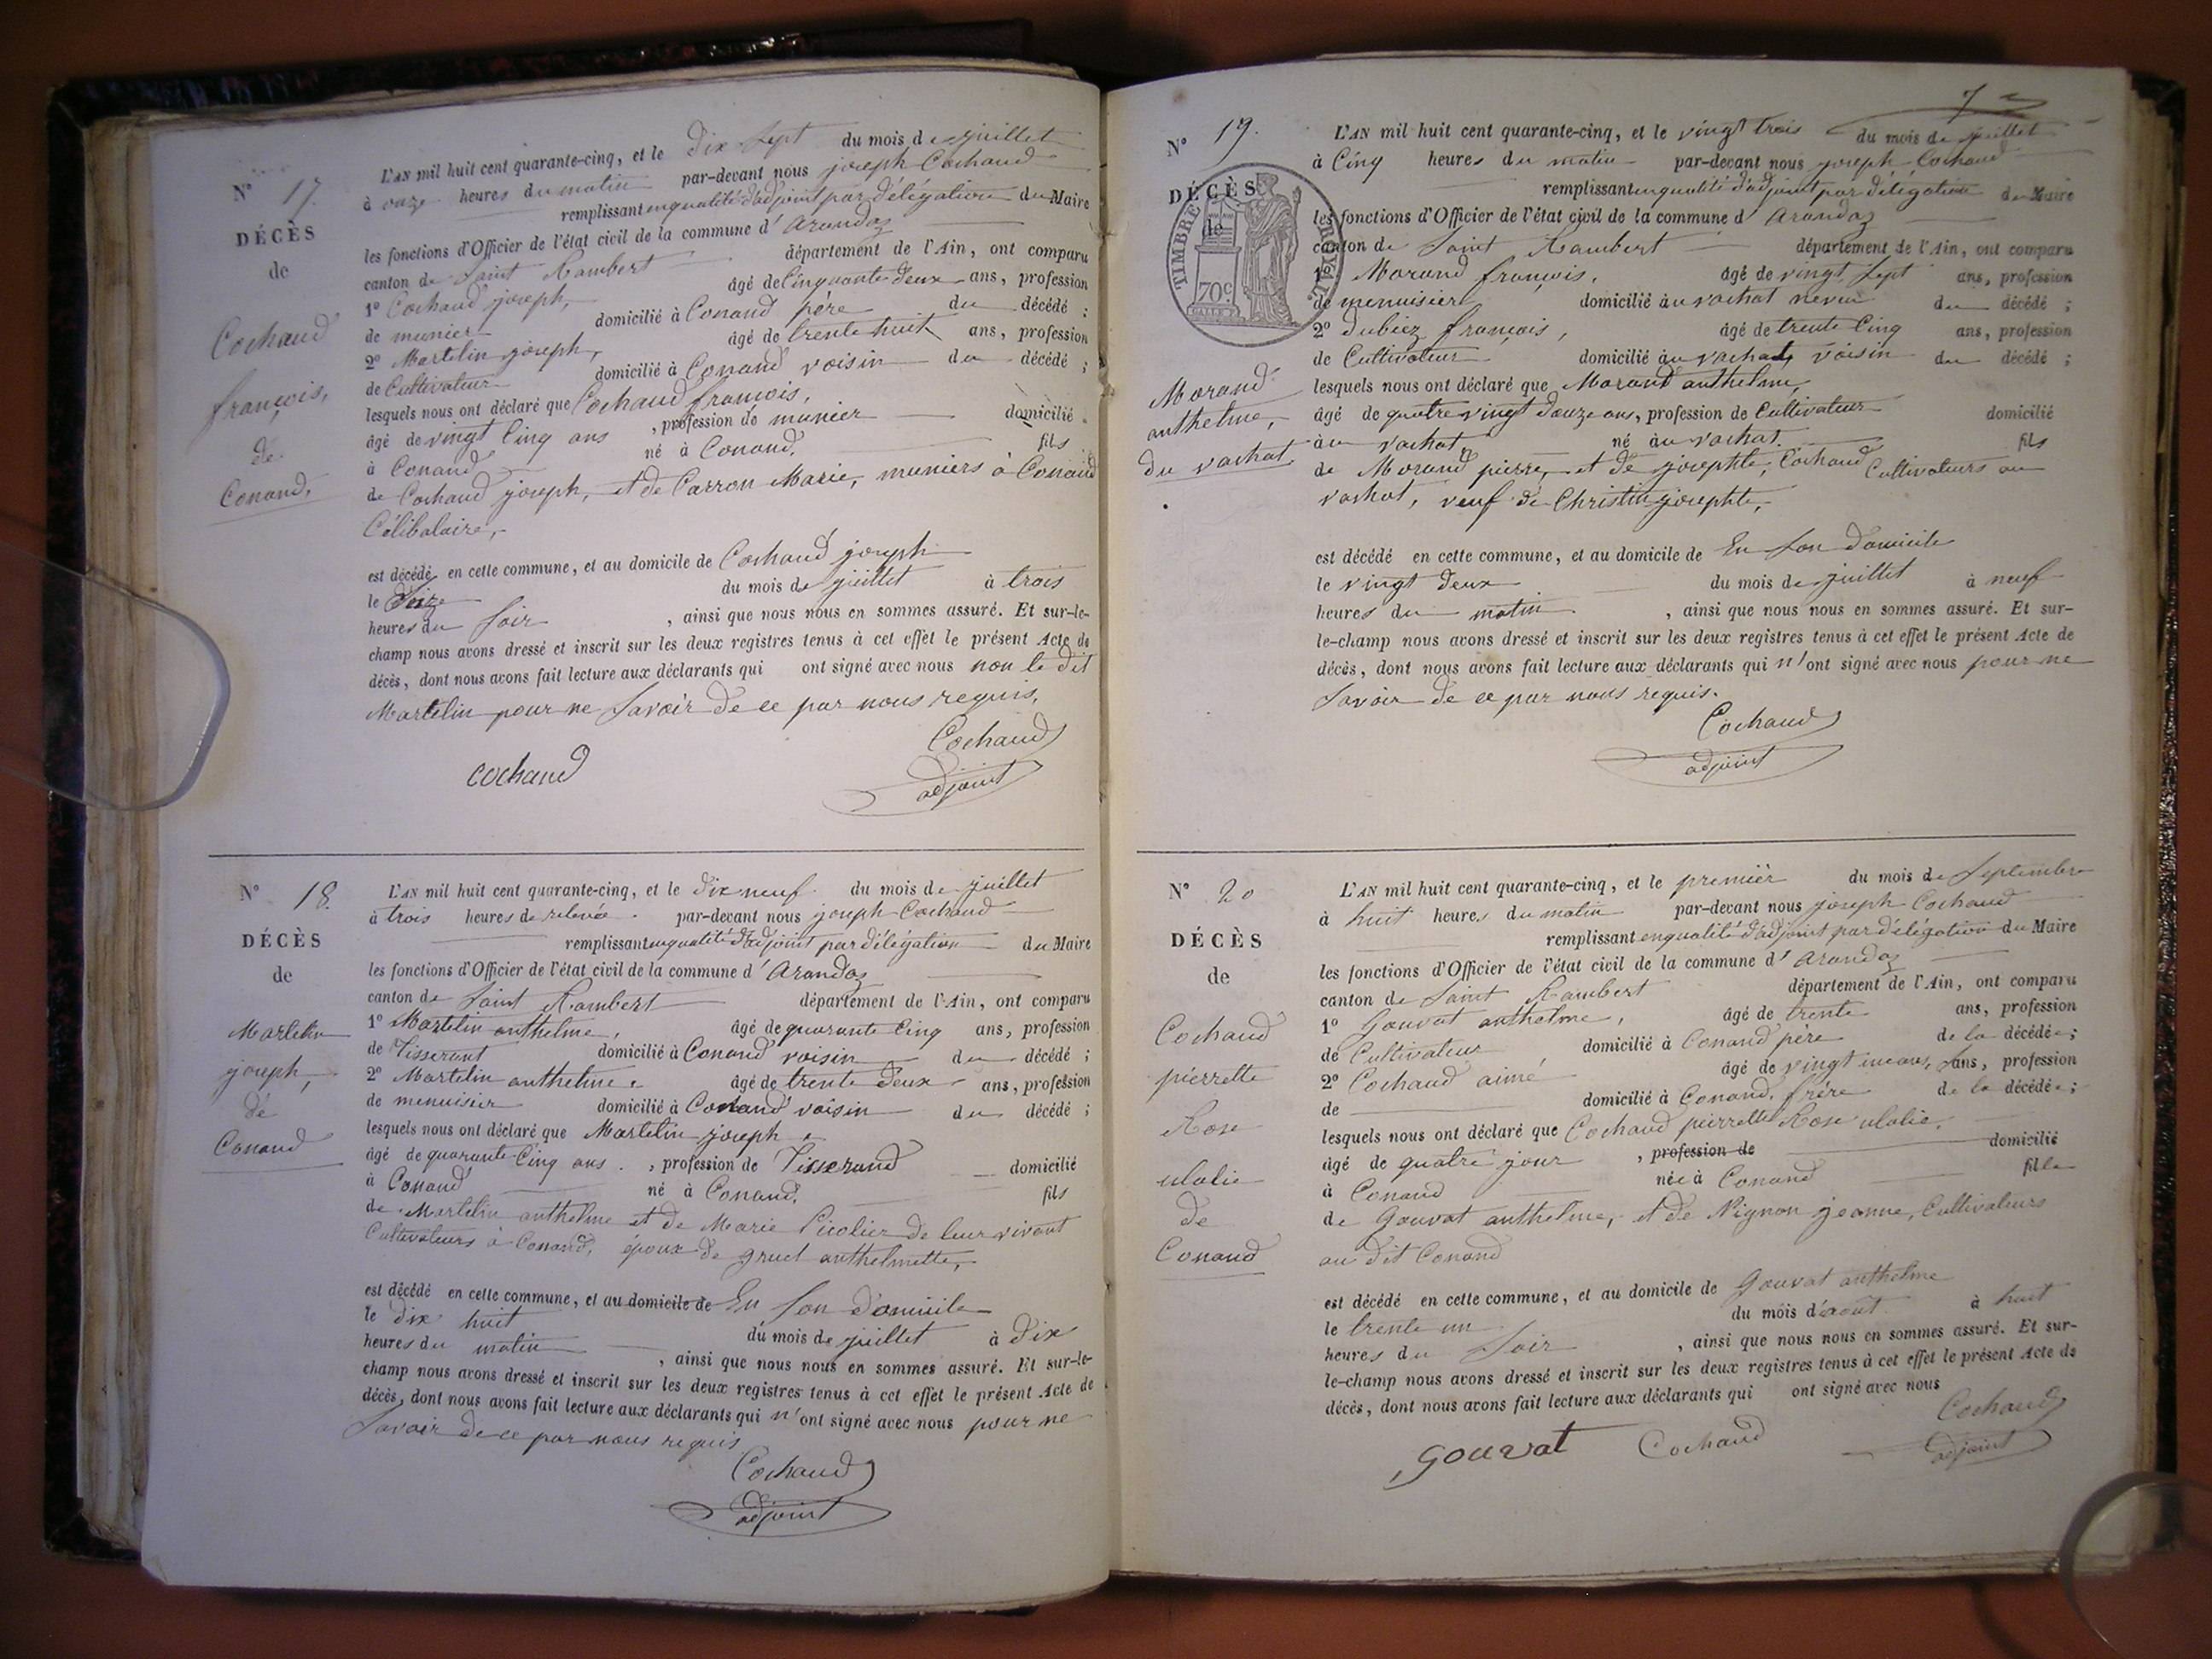 N° 17.
DÉCÈS
de
Cochaud
françois,
de
Conand,
L'AN mil huit cent quarante-cinq, et le dix Sept du mois de juillet
à onze heures du matin par-devant nous joseph Cochaud
remplissant enqualité d'adjoint par délégation du Maire
les fonctions d'Officier de l'état civil de la commune d' arandas
canton de Saint Rambert département de l'Ain, ont comparu
1° Cochaud joseph, âgé de Cinquante deux ans, profession
de munier domicilié à Conand père du décédé ;
2° Martelin joseph, âgé de trente huit ans, profession
de Cultivateur domicilié à Conand voisin du décédé ;
lesquels nous ont déclaré que Cochaud françois,
âgé de vingt Cinq ans , profession de munier domicilié
à Conand né à Conand, fils
de Cochaud joseph, et de Carron Marie, muniers à Conand
Célibataire,
est décédé en cette commune, et au domicile de Cochaud joseph
le Seize du mois de juillet à trois
heures du Soir , ainsi que nous nous en sommes assuré. Et sur-le-
champ nous avons dressé et inscrit sur les deux registres tenus à cet effet le présent Acte de
décès, dont nous avons fait lecture aux déclarants qui ont signé avec nous non le dit
Martelin pour ne Savoir de ce par nous requis,
Cochaud
cochaud
adjoint
N° 18.
DÉCÈS
de
Martelin
joseph,
de
Conand
L'AN mil huit cent quarante-cinq, et le dix neuf du mois de juillet
à trois heures de relevée par-devant nous joseph Cochaud
remplissant enqualité d'adjoint par délégation du Maire
les fonctions d'Officier de l'état civil de la commune d' Arandas
canton de Saint Rambert département de l'Ain, ont comparu
1° Martelin anthelme, âgé de quarante Cinq ans, profession
de Tisserant domicilié à Conand voisin du décédé ;
2° Martelin anthelme, âgé de trente deux ans, profession
de menuisier domicilié à Conand voisin du décédé ;
lesquels nous ont déclaré que Martelin joseph,
âgé de quarante Cinq ans , profession de Tisserand domicilié
à Conand né à Conand, fils
de Martelin anthelme et de Marie Picolier de leur vivant
Cultivateurs à Conand, époux de gruel anthelmette,
est décédé en cette commune, et au domicile de En Son domicile
le dix huit du mois de juillet à dix
heures du matin , ainsi que nous nous en sommes assuré. Et sur-le-
champ nous avons dressé et inscrit sur les deux registres tenus à cet effet le présent Acte de
décès, dont nous avons fait lecture aux déclarants qui n'ont signé avec nous pour ne
Savoir de ce par nous requis
Cochaud
adjoint
7
N° 19.
DÉCÈS
de
TIMBRE ROYAL
70c
Morand
anthelme,
du vachat
L'AN mil huit cent quarante-cinq, et le vingt trois du mois de juillet
à Cinq heures du matin par-devant nous joseph Cochaud
remplissant enqualité d'adjoint par délégation du Maire
les fonctions d'Officier de l'état civil de la commune d' arandas
canton de Saint Rambert département de l'Ain, ont comparu
1° Morand françois, âgé de vingt Sept ans, profession
de menuisier domicilié au vachat neveu du décédé ;
2° Dubiez françois, âgé de trente Cinq ans, profession
de Cultivateur domicilié au vachat, voisin du décédé ;
lesquels nous ont déclaré que Morand anthelme,
âgé de quatre vingt douze ans, profession de Cultivateur domicilié
au vachat, né au vachat. fils
de Morand pierre, et de josephte, Cochaud Cultivateurs au
vachat, veuf de Christin josephte,
est décédé en cette commune, et au domicile de En Son domicile
le vingt deux du mois de juillet à neuf
heures du matin , ainsi que nous nous en sommes assuré. Et sur-
le-champ nous avons dressé et inscrit sur les deux registres tenus à cet effet le présent Acte de
décès, dont nous avons fait lecture aux déclarants qui n'ont signé avec nous pour ne
Savoir de ce par nous requis.
Cochaud
adjoint
N° 20
DÉCÈS
de
Cochaud
pierrette
Rose
ulalie
de
Conand
L'AN mil huit cent quarante-cinq, et le premier du mois de Septembre
à huit heures du matin par-devant nous joseph Cochaud
remplissant enqualité d'adjoint par délégation du Maire
les fonctions d'Officier de l'état civil de la commune d' arandas
canton de Saint Rambert département de l'Ain, ont comparu
1° Gouvat anthelme, âgé de trente ans, profession
de Cultivateur, domicilié à Conand père de la décédée ;
2° Cochaud aimé âgé de vingt un ans, Sans, profession
de domicilié à Conand, frère de la décédée ;
lesquels nous ont déclaré que Cochaud pierrette Rose ulalie,
âgé de quatre jour , profession de domicilié
à Conand née à Conand fille
de Gouvat anthelme, et de Nignon jeanne, Cultivateurs
au dit Conand
est décédé en cette commune, et au domicile de Gouvat anthelme
le trente un du mois d'août à huit
heures du Soir , ainsi que nous nous en sommes assuré. Et sur-
le-champ nous avons dressé et inscrit sur les deux registres tenus à cet effet le présent Acte de
décès, dont nous avons fait lecture aux déclarants qui ont signé avec nous
gouvat Cochaud Cochaud
adjoint